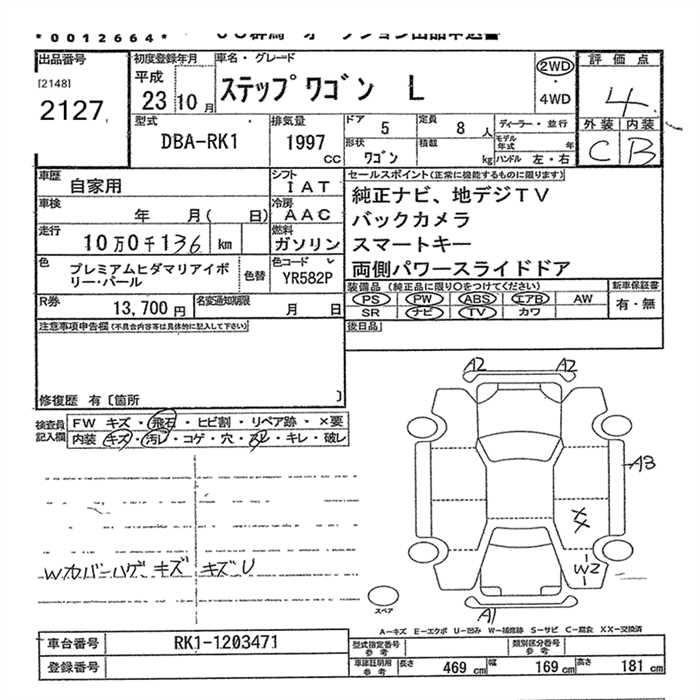 *0012664*
出品番号
[2148]
2127
初度登録年月
平成
23年10月
車名・グレード
ステップワゴン L
2WD
・
4WD
評価点
4
外装 内装
C B
型式
DBA-RK1
排気量
1997
cc
ドア
5
定員
8人
形状
ワゴン
積載
kg
ディーラー・並行
モデル年式 年
ハンドル 左・右
車歴
自家用
シフト
IAT
車検
年 月( 日)
冷房
AAC
走行
10万0千136 km
燃料
ガソリン
色
プレミアムヒダマリアイボリー・パール
色替
色コード
YR582P
R券
13,700円
名変通知期限
月 日
セールスポイント(正常に機能するものに限ります)
純正ナビ、地デジTV
バックカメラ
スマートキー
両側パワースライドドア
装備品 (純正品に限り○をつけてください)
PS PW ABS エアB AW
SR ナビ TV カワ
新車保証書
有・無
後日品
注意事項申告欄(不具合内容等は具体的に記入して下さい)
修復歴 有〔箇所 〕
検査員
記入欄
FW キズ・飛石・ヒビ割・リペア跡・×要
内装 キズ・汚レ・コゲ・穴・スレ・キレ・破レ
Wカバーハゲ キズ キズU
A2 A2
A3
XX
W2
A1
スペア
A-キズ E-エクボ U-凹み W-補修跡 S-サビ C-腐食 XX-交換済
車台番号
RK1-1203471
登録番号
型式指定番号
参考
類別区分番号
参考
車庫証明用
参考
長さ 469cm 幅 169cm 高さ 181cm